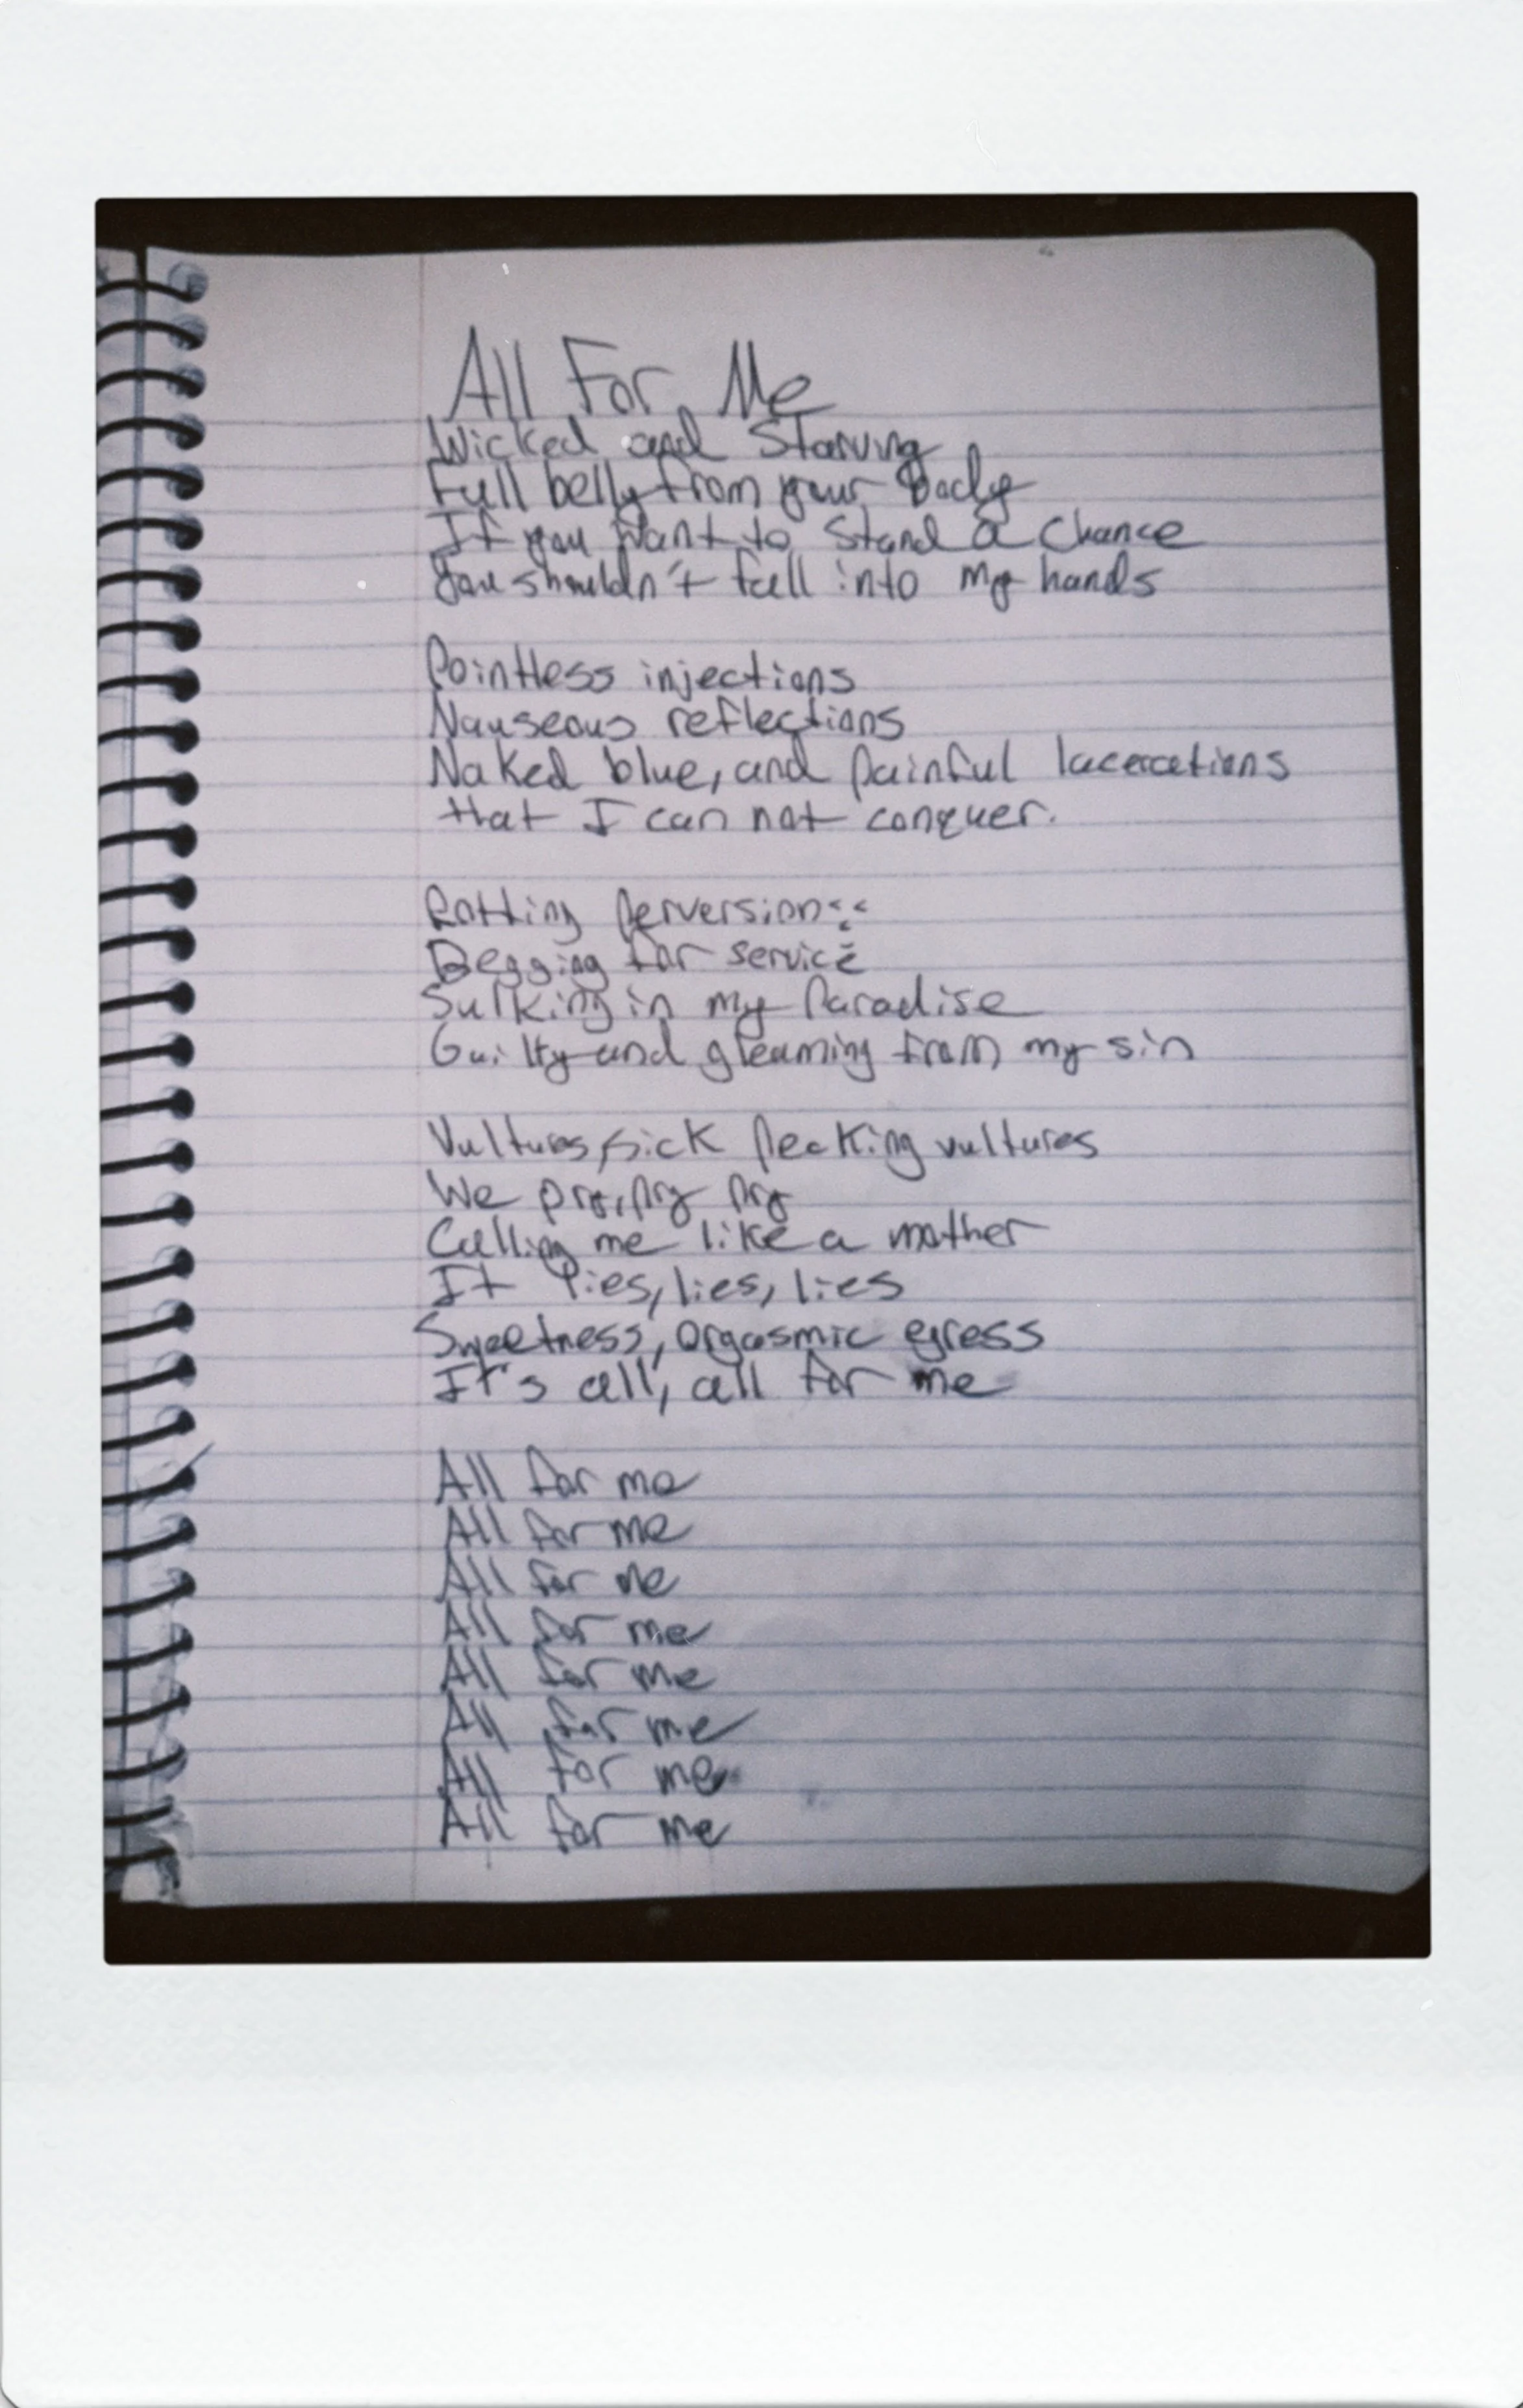 All For Me
Wicked and Starving
Full belly from your Body
If you want to stand a chance
You shouldn't fall into my hands
Pointless injections
Nauseous reflections
Naked blue, and painful lacerations
that I can not conquer.
Rotting perversion
Begging for service
Sulking in my Paradise
Guilty and gleaming from my sin
Vultures, sick pecking vultures
We pry, pry pry
Calling me like a mother
It lies, lies, lies
Sweetness, orgasmic egress
It's all, all for me
All for me
All for me
All for me
All for me
All for me
All for me
All for me
All for me